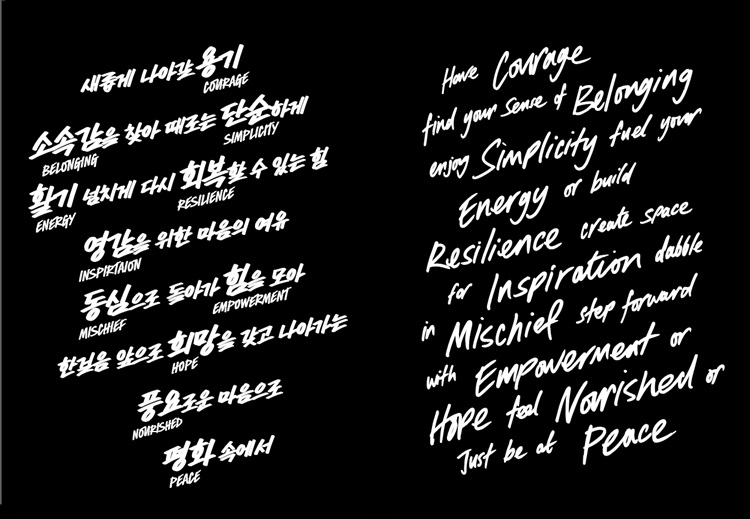 새롭게 나아갈 용기
COURAGE
소속감을 찾아 때로는 단순하게
BELONGING SIMPLICITY
활기 넘치게 다시 회복할 수 있는 힘
ENERGY RESILIENCE
영감을 위한 마음의 여유
INSPIRTAION
동심으로 돌아가 힘을 모아
MISCHIEF EMPOWERMENT
한걸음 앞으로 희망을 갖고 나아가는
HOPE
풍요로운 마음으로
NOURISHED
평화 속에서
PEACE
Have Courage
find your sense of Belonging
enjoy Simplicity fuel your
Energy or build
Resilience create space
for Inspiration dabble
in Mischief step forward
with Empowerment or
Hope feel Nourished or
Just be at Peace